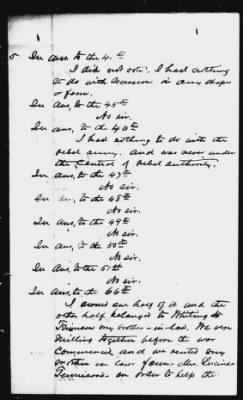 5 In ans to the 4th
I did not vote. I had nothing
to do with secession in any shape
or form.
In Ans, to the 45th
No sir.
In ans, to the 46th
I had nothing to do with the
rebel army. And was never under
the control of rebel authority.
In Ans, to the 47th
No sir.
In ans, to the 48th
No sir.
In Ans, to the 49th
No sir.
In ans, to the 50th
No sir.
In Ans, to the 51th
No sir.
In Ans, to the 66th
I owned one half of it and the
other half belonged to Whiting
my brother-in-law. We were
Milling together before the war
Commenced and we rented my
mother in laws farm. Mrs. Lucinda
in order to help the